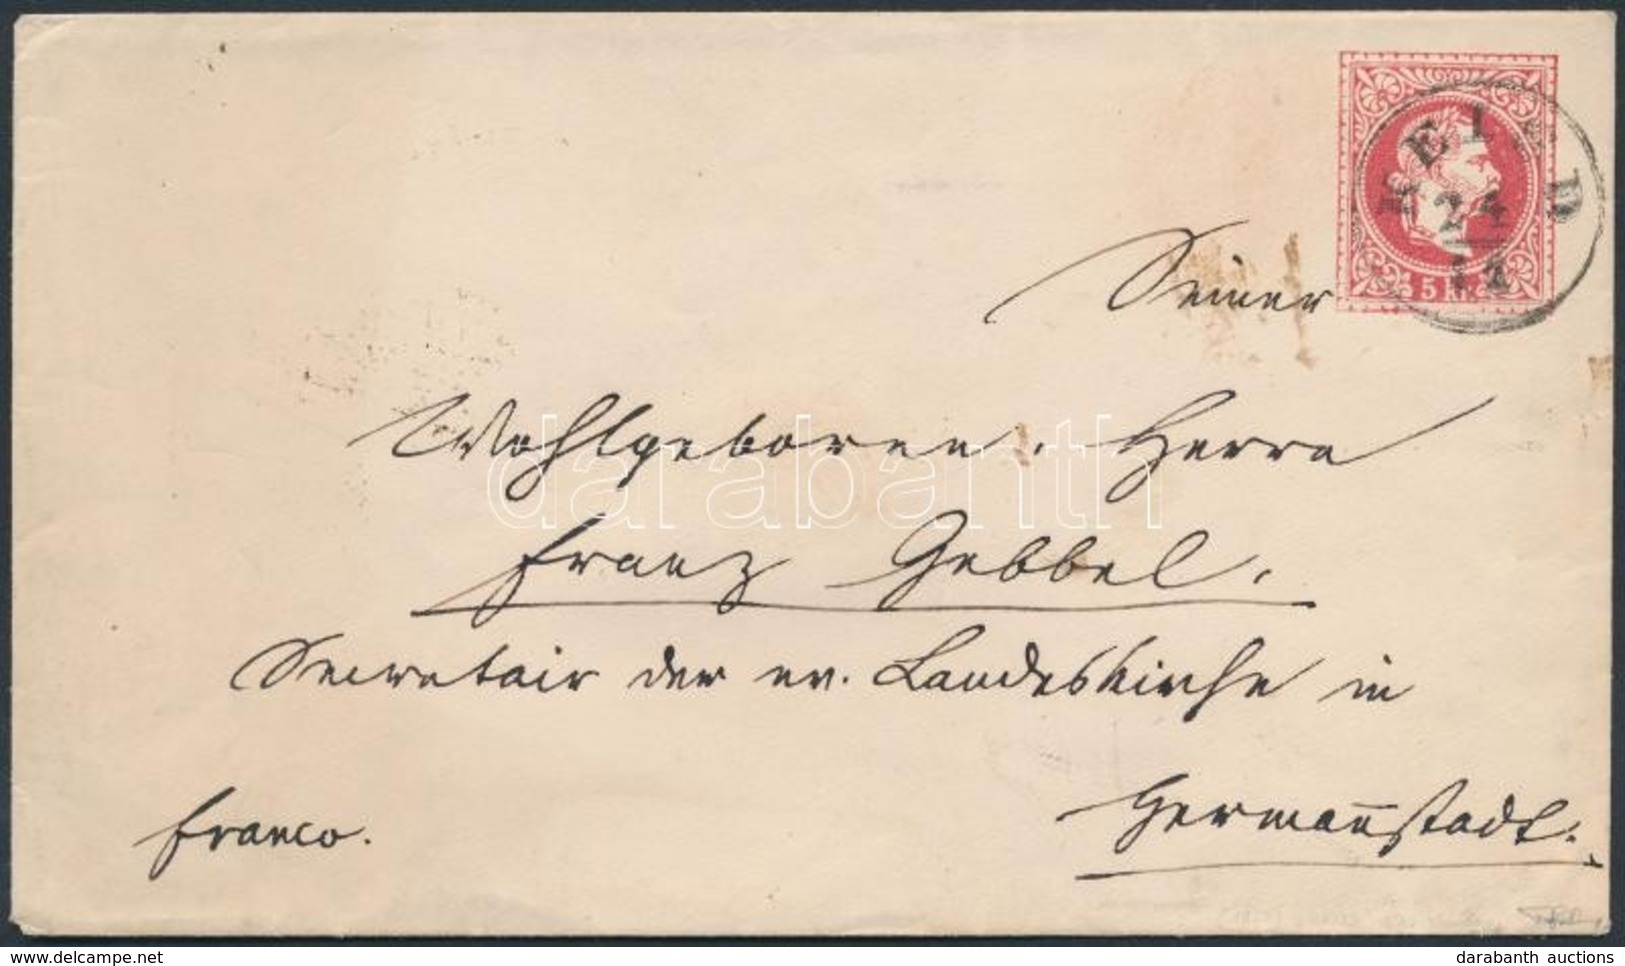 REISD
24
5 Kr.
Seiner
Wohlgeboren, Herrn
darabanth
Franz Gebbel.
Secretair der ev. Landeskirche in
Hermannstadt.
franco.
delcampe.net
darabanth auctions